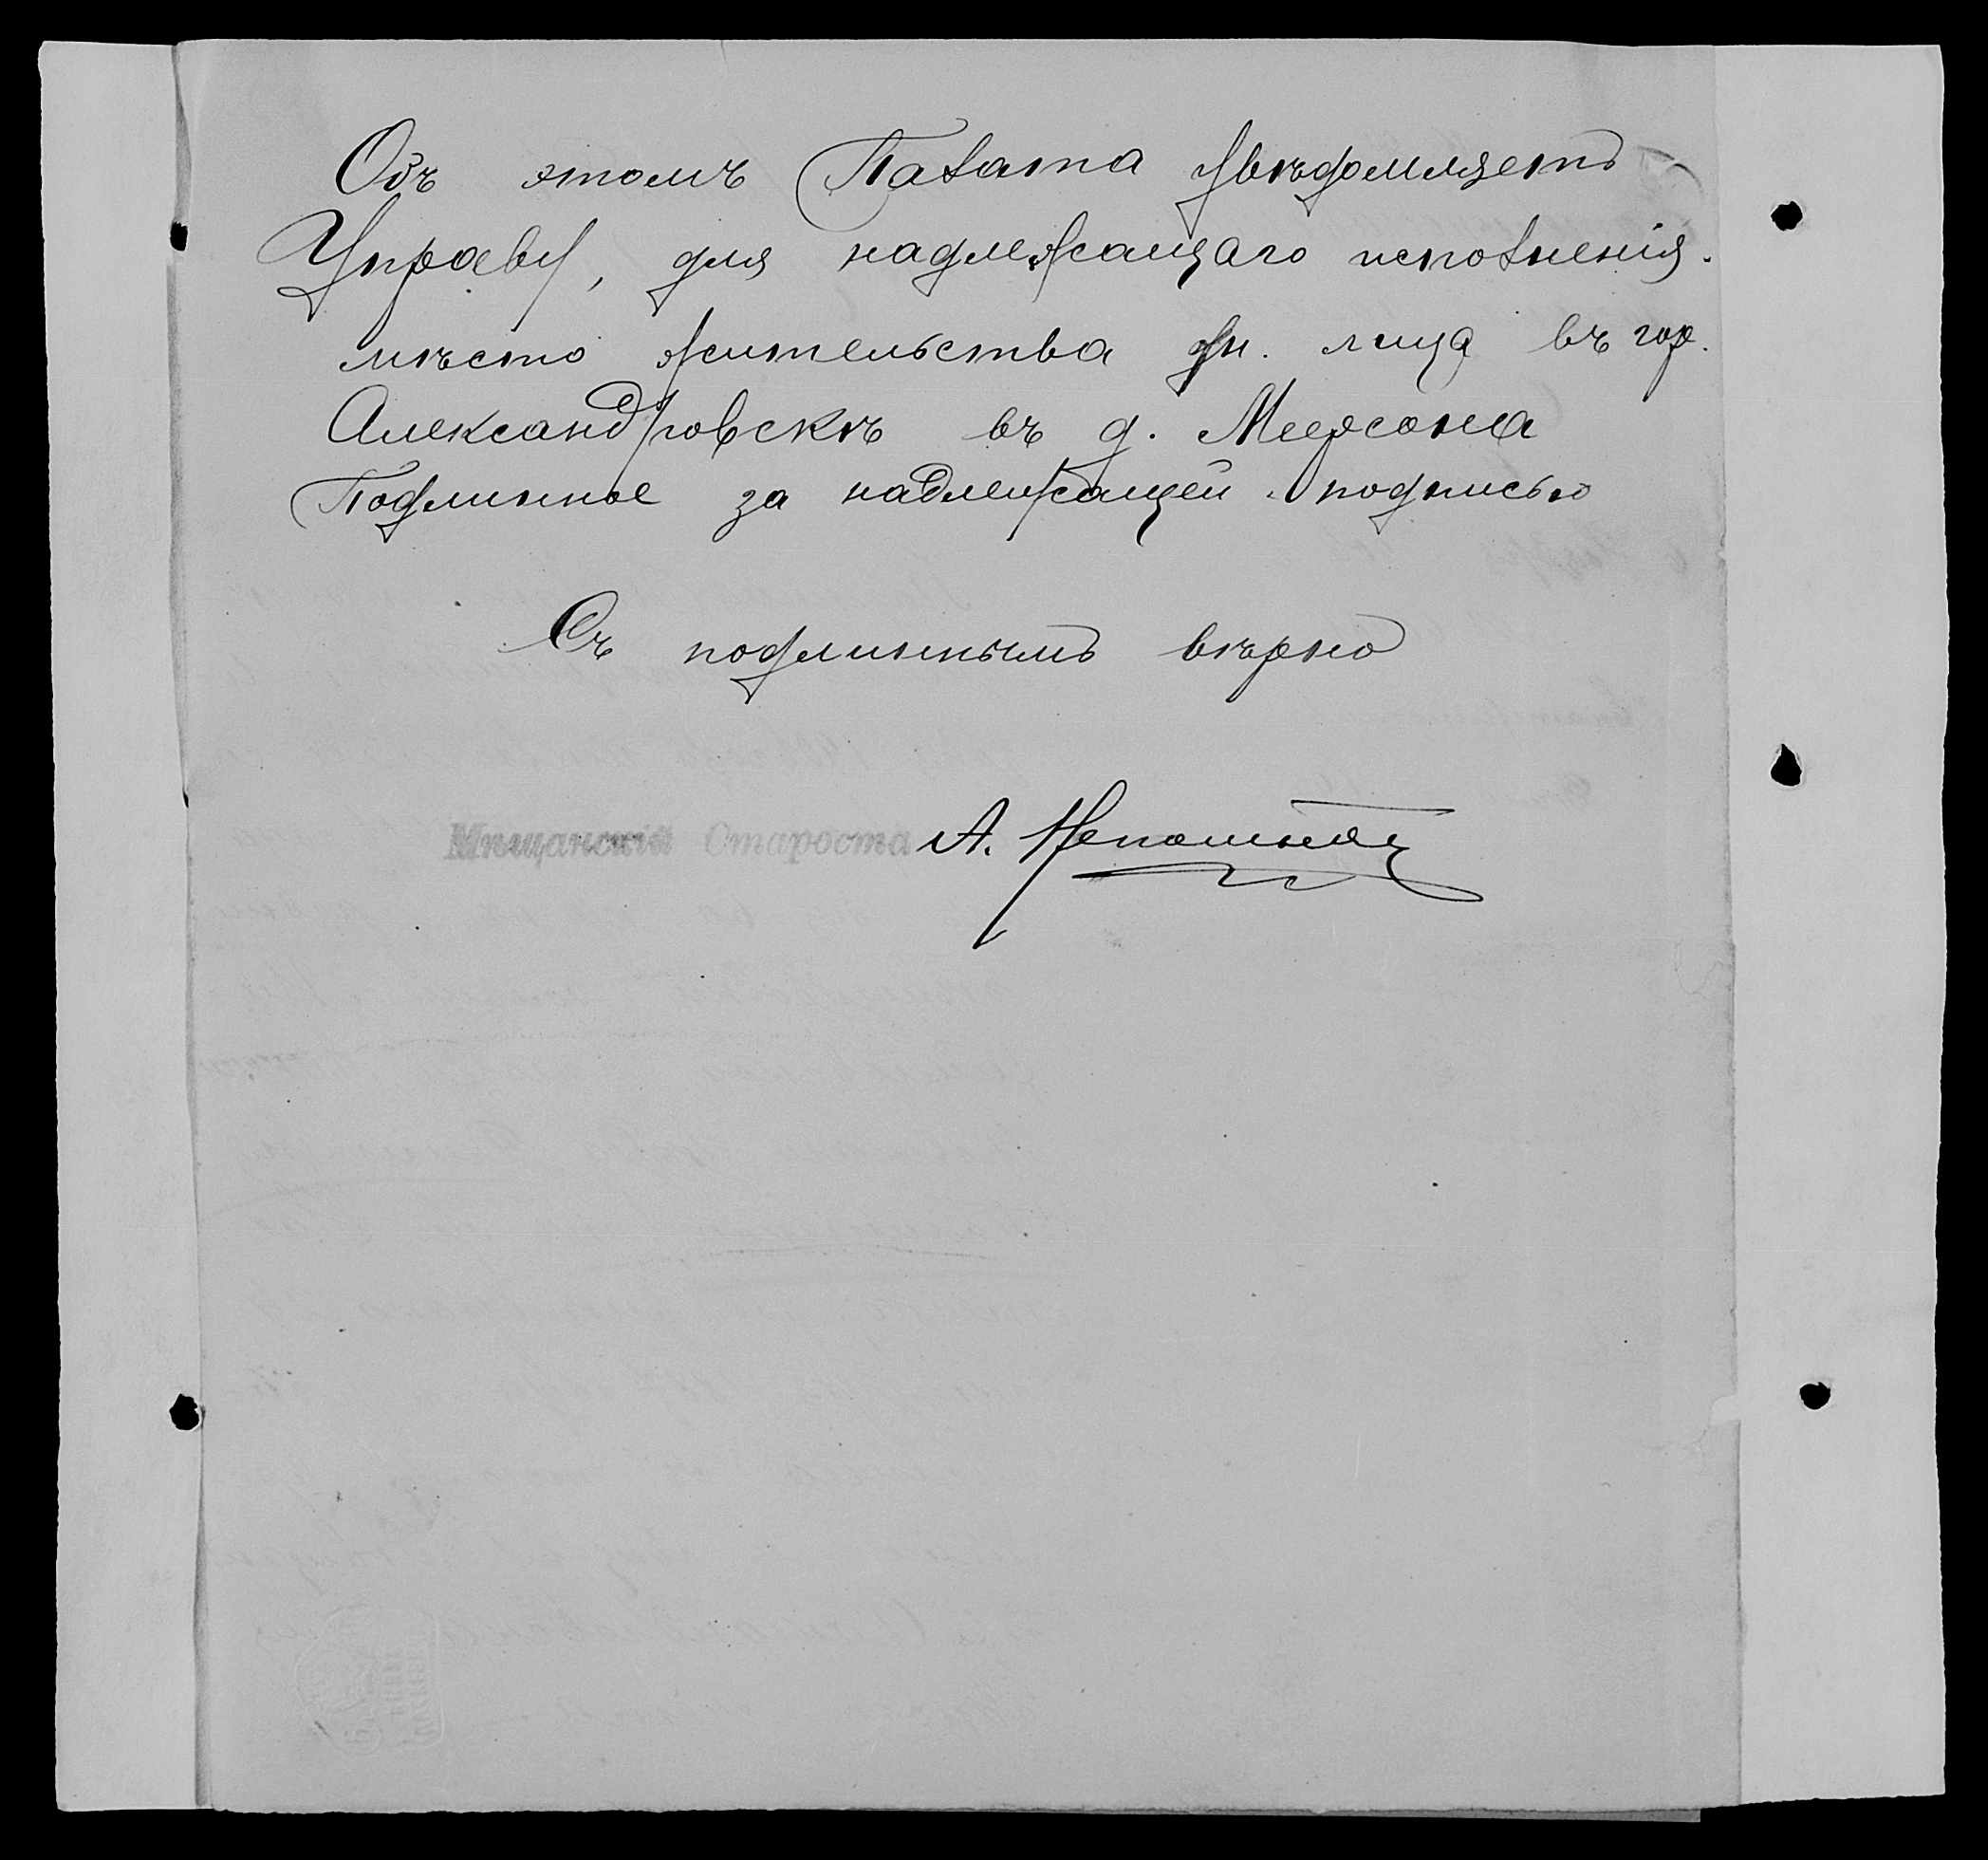 Объ этомъ Палата увѣдомляетъ
Управу, для надлежащаго исполненія.
мѣсто жительства дн. лица въ гор.
Александровскѣ въ д. Меерсона
Подлинное за надлежащей подписью
Съ подлиннымъ вѣрно
Мѣщанскій Староста А.